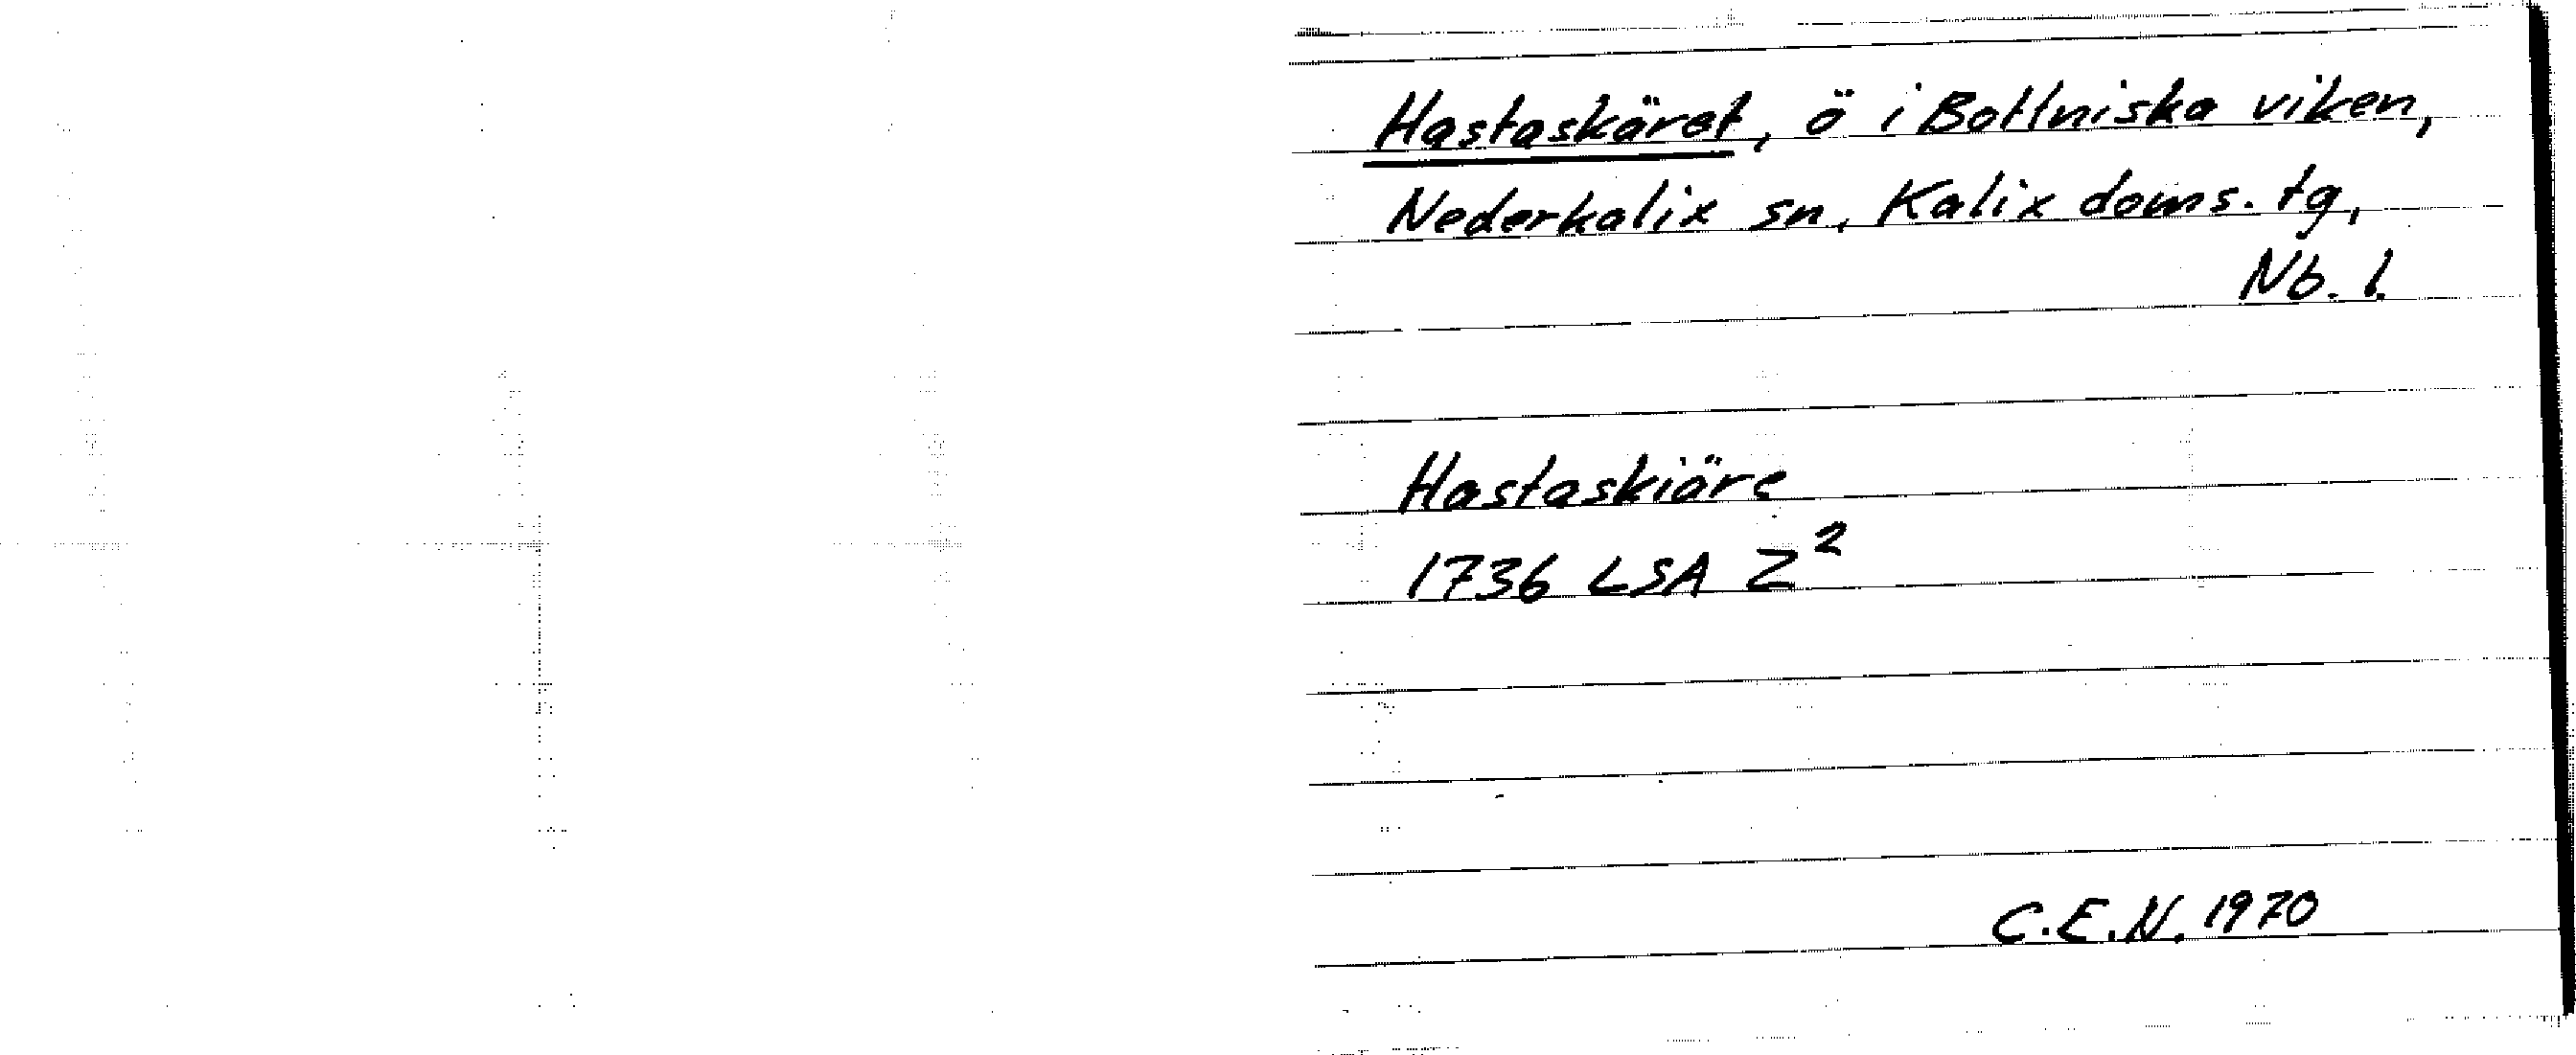 Hastaskäret, ö i Bottniska viken,
Nederkalix sn, Kalix doms. tg,
Nb. l.
Hastaskiäre
1736 LSA Z²
C.E.N. 1970